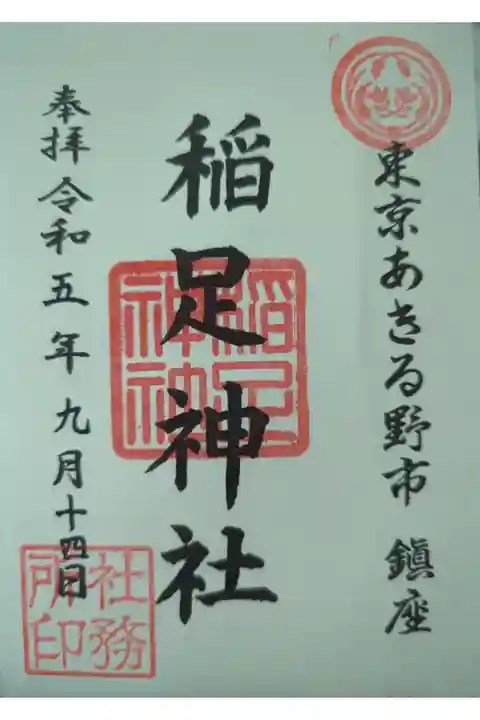 東京あきる野市 鎮座
稲足神社
稲足
神社
奉拝 令和五年九月十四日
社務
所印